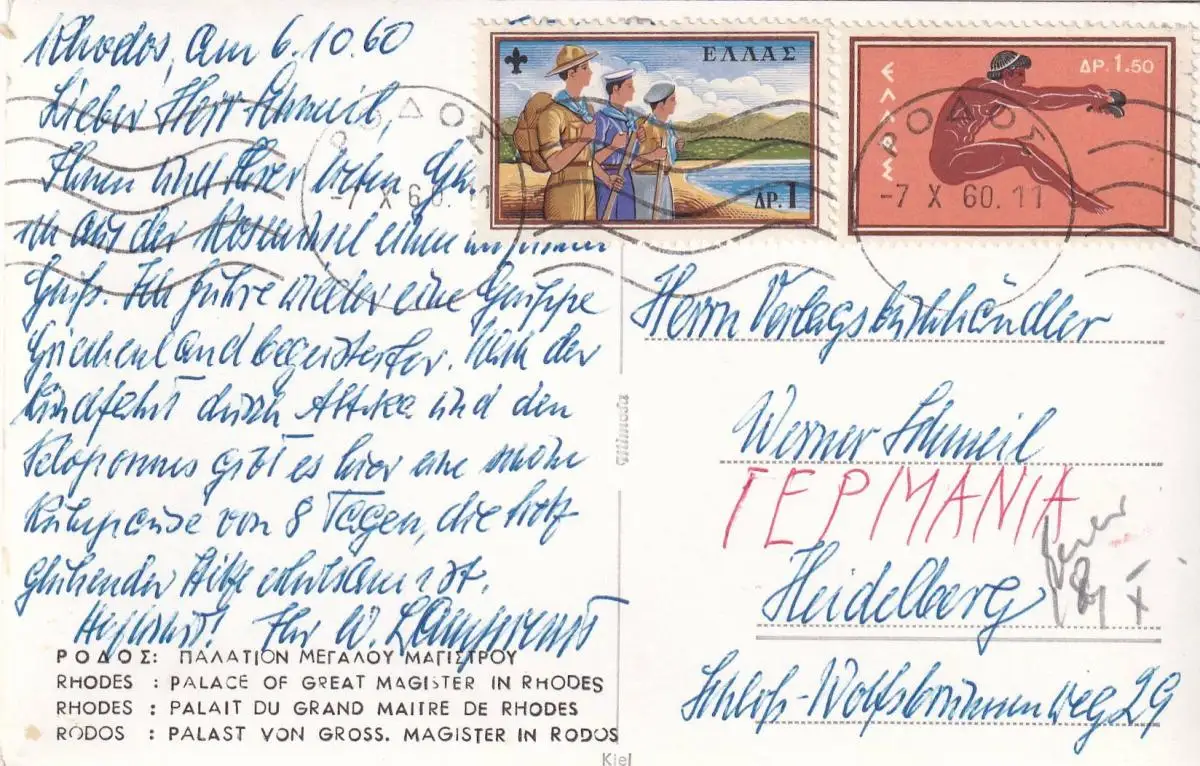 Rhodos, am 6.10.60
Lieber Herr Schmeil,
Ihnen und Ihrer lieben
ich aus der Roseninsel einen
Gruß. Ich führe wieder eine Gruppe
Griechenlandbegeisterter. Nach der
Rundfahrt durch Attika und den
Peloponnes gibt es hier eine schöne
Ruhepause von 8 Tagen, die trotz
glühender Hitze erholsam ist.
Ihr W.
ΡΟΔΟΣ: ΠΑΛΑΤΙΟΝ ΜΕΓΑΛΟΥ ΜΑΓΙΣΤΡΟΥ
RHODES : PALACE OF GREAT MAGISTER IN RHODES
RHODES : PALAIT DU GRAND MAITRE DE RHODES
RODOS : PALAST VON GROSS. MAGISTER IN RODOS
ΕΛΛΑΣ
ΔΡ. 1
ΕΛΛΑΣ
ΔΡ. 1.50
ΡΟΔΟΣ
-7 X 60. 11
ΡΟΔΟΣ
-7 X 60. 11
Herrn Verlagsbuchhändler
Werner Schmeil
ΓΕΡΜΑΝΙΑ
Heidelberg
Schloß-Wolfsbrunnenweg 29
Kiel